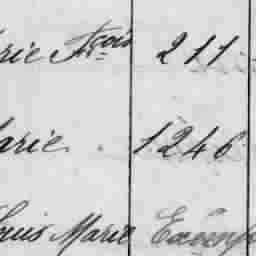 rie Fçois 211
arie. 1246
ouis Marie Exemp